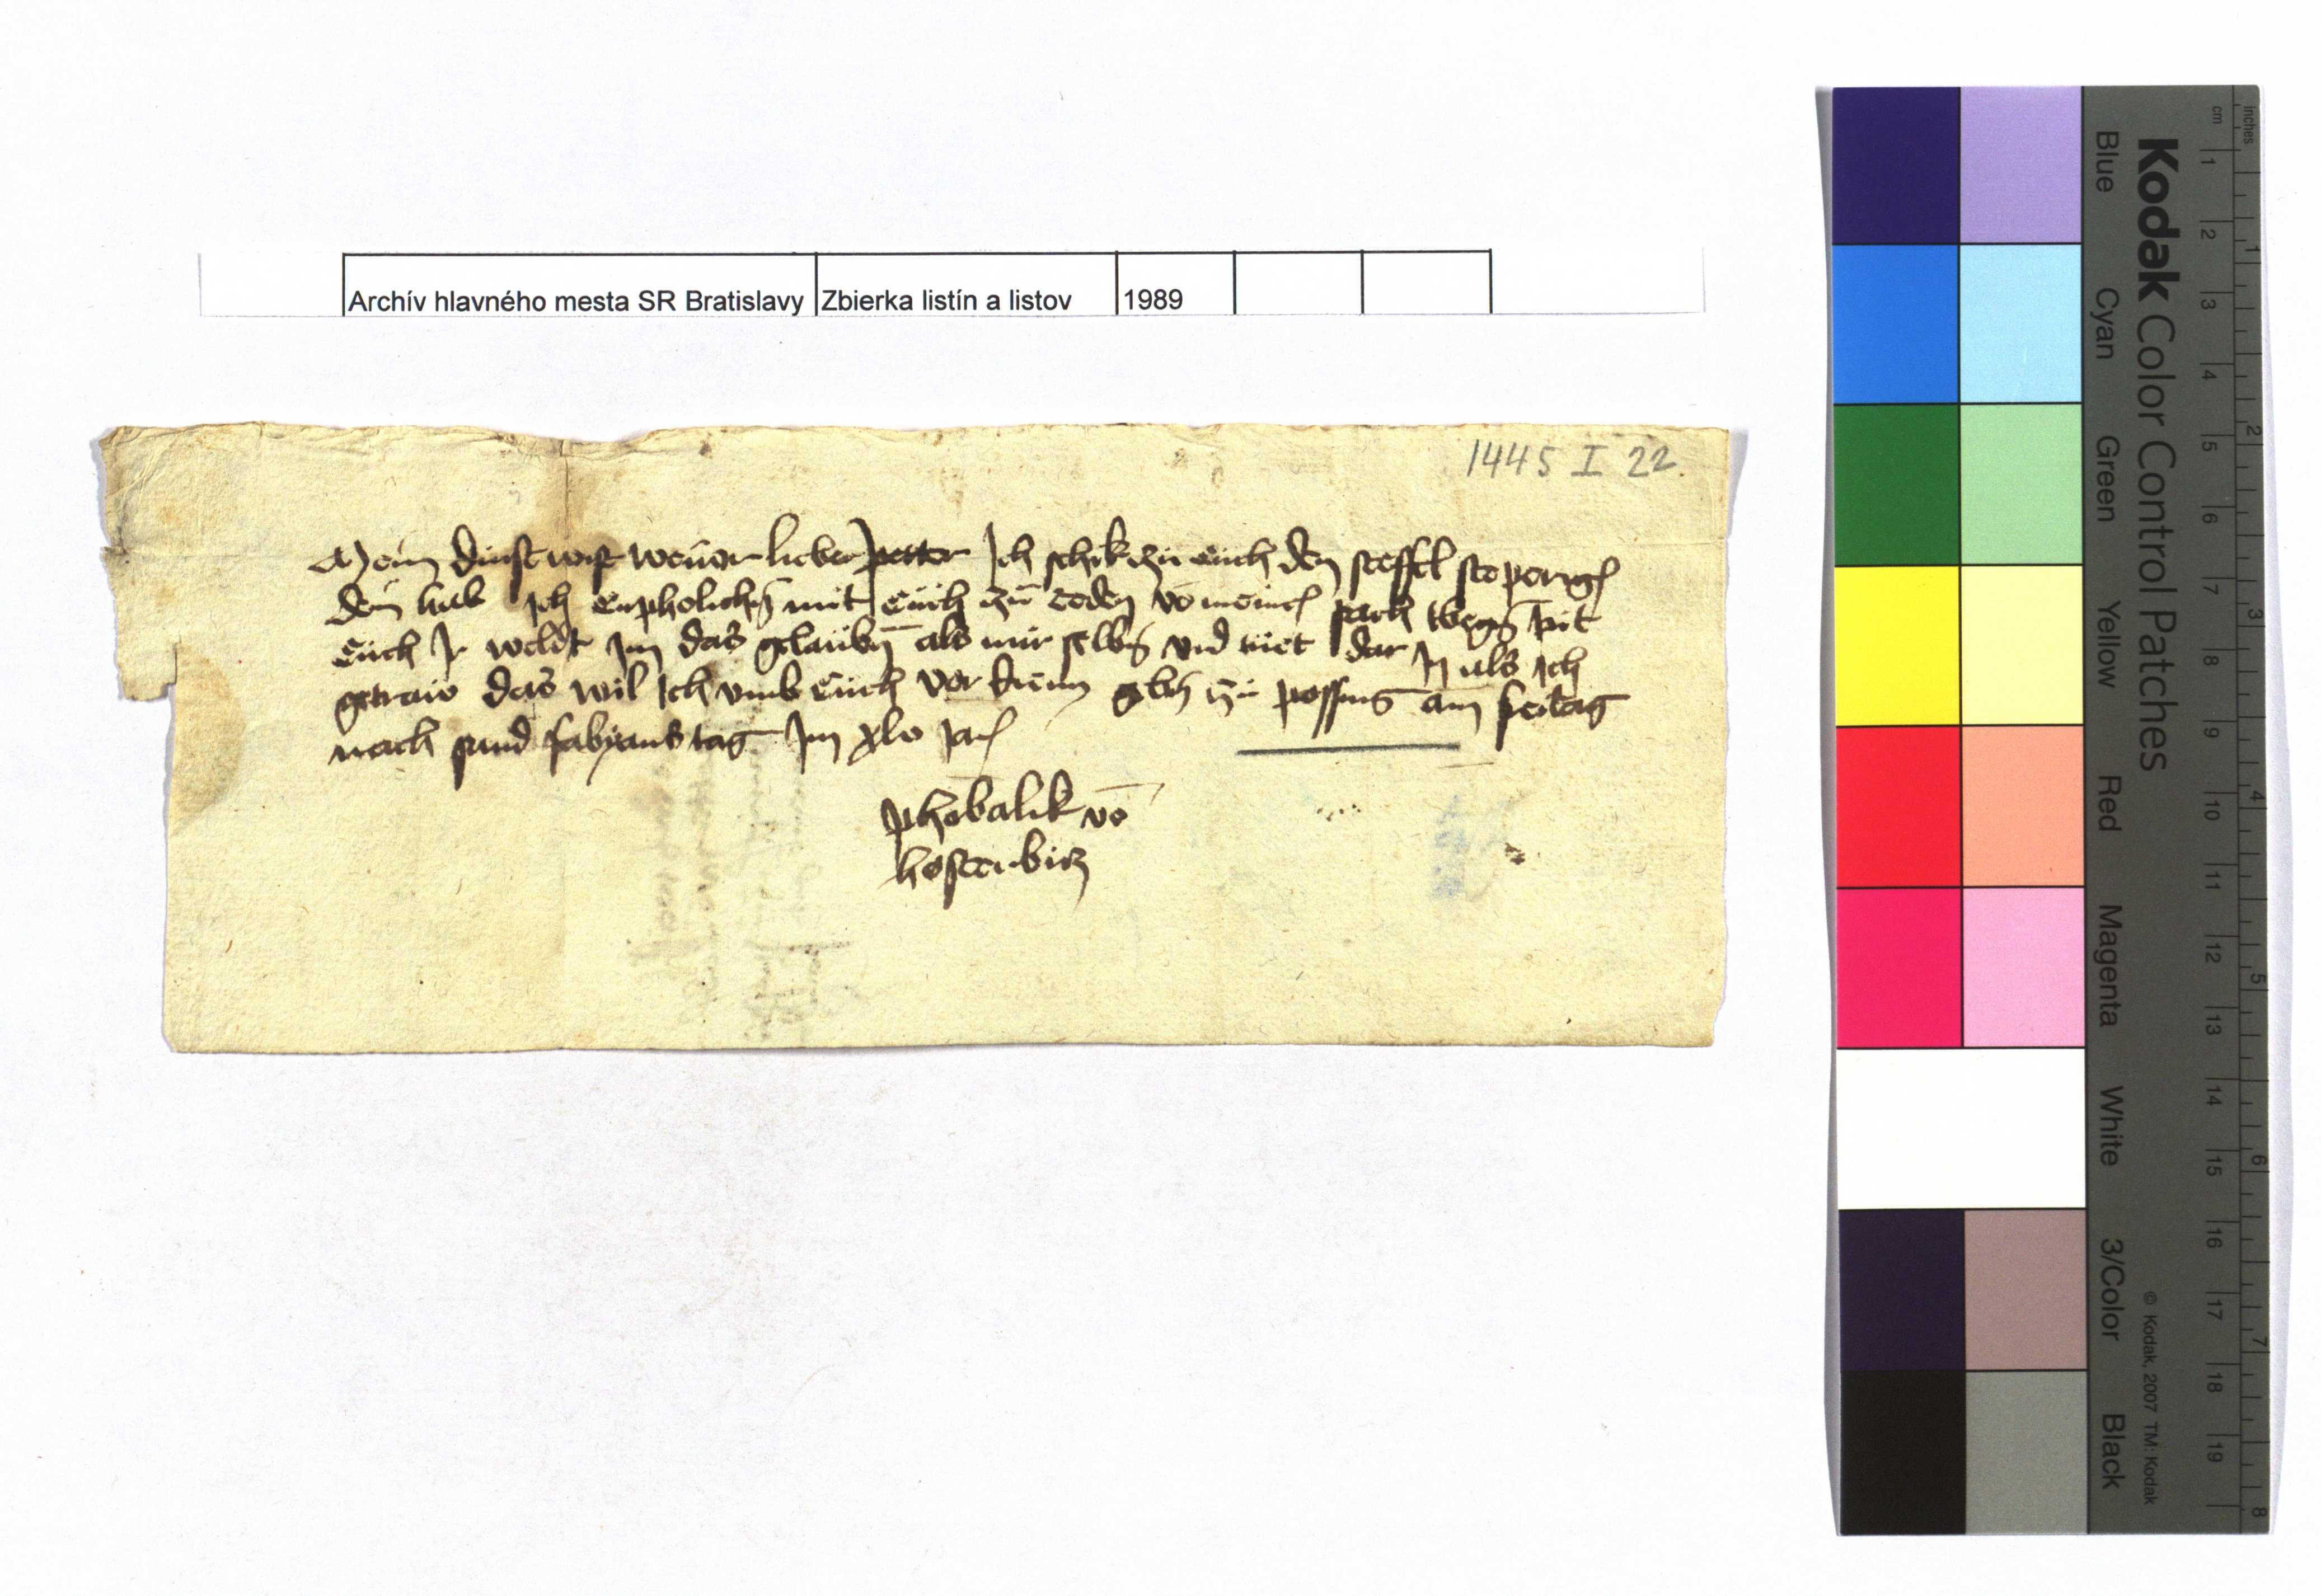 Archív hlavného mesta SR Bratislavy Zbierka listín a listov 1989
1445 I 22.
Mein dinst vor lieber petter Ich schik zu euch den steffel
dem hab Ich enpholichn mit euch zu reden vo meiner sach wegn pit
euch Ir weldt Im das glaubn als mir selbs vnd tuet dar In als Ich
getraw das wil Ich vmb euch vor dienn gebn zu possing am freitag
nach sand fabyans tag Im xlv Jar
phobalik vo
hosterbicz
Kodak Color Control Patches
Blue Cyan Green Yellow Red Magenta White 3/Color Black
© Kodak, 2007 TM: Kodak
inches 1 2 3 4 5 6 7 8
cm 1 2 3 4 5 6 7 8 9 10 11 12 13 14 15 16 17 18 19